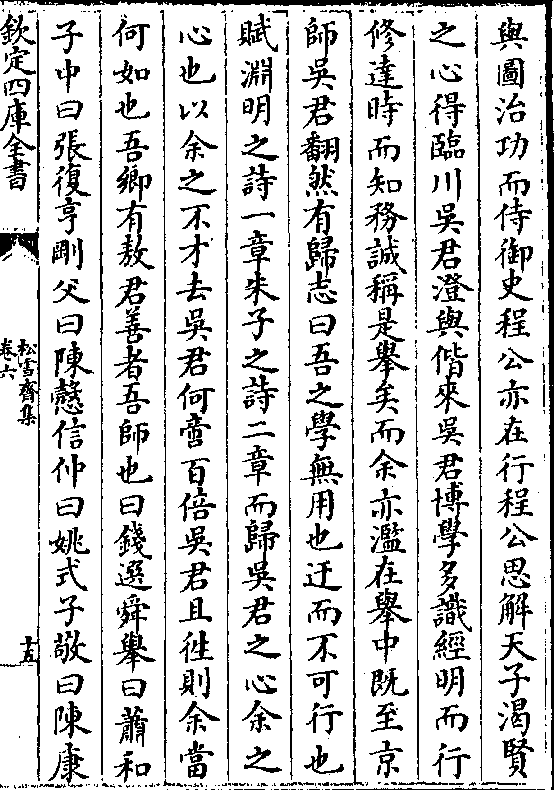 與圖治功而侍御史程公亦在行程公思解天子渴賢
之心得臨川吳君澄與偕來吳君博學多識經明而行
修達時而知務誠稱是舉矣而余亦濫在舉中既至京
師吳君翻然有歸志曰吾之學無用也迂而不可行也
賦淵明之詩一章朱子之詩二章而歸吳君之心余之
心也以余之不才去吳君何啻百倍吳君且徃則余當
何如也吾鄉有敖君善者吾師也曰錢選舜舉曰蕭和
子中曰張復亨剛父曰陳慤信仲曰姚式子敬曰陳康
欽定四庫全書
松雪齋集
卷六
十五